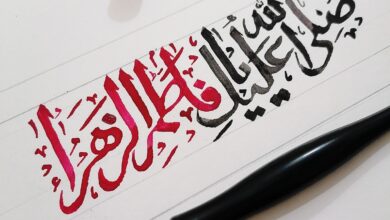 صلی الله علیک یا فاطمة الزهراء